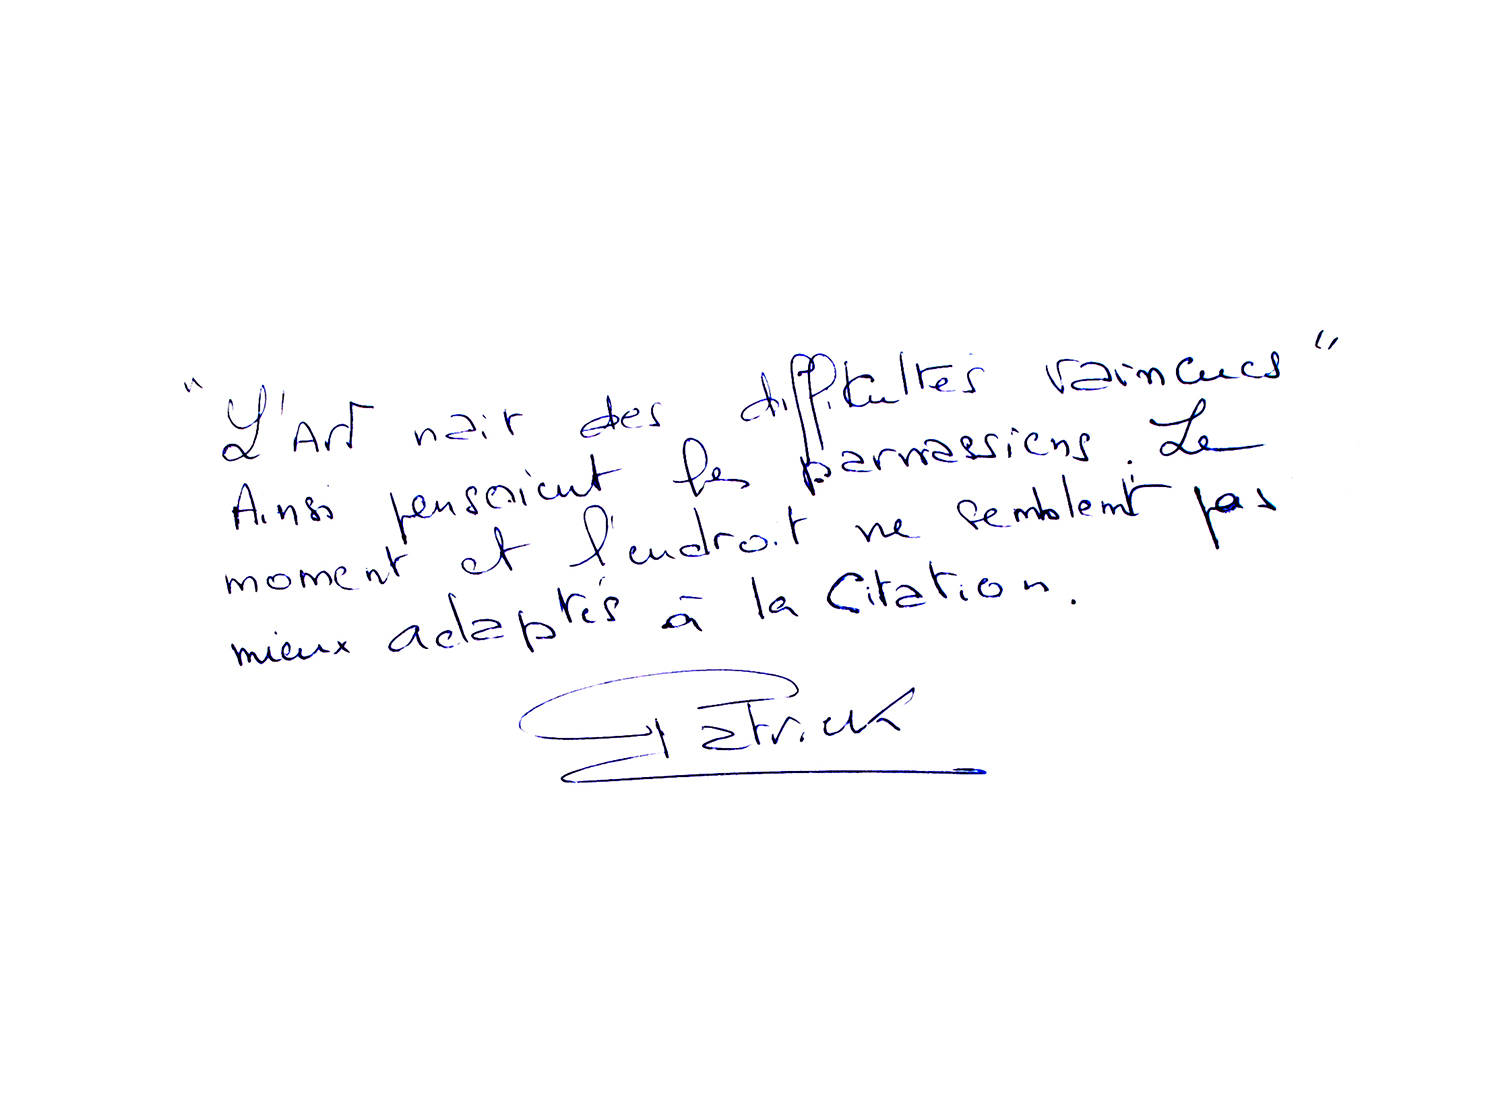 "L'Art nait des difficultés vaincues"
Ainsi pensaient les parnassiens. Le
moment et l'endroit ne semblent pas
mieux adaptés à la Citation.
Patrick